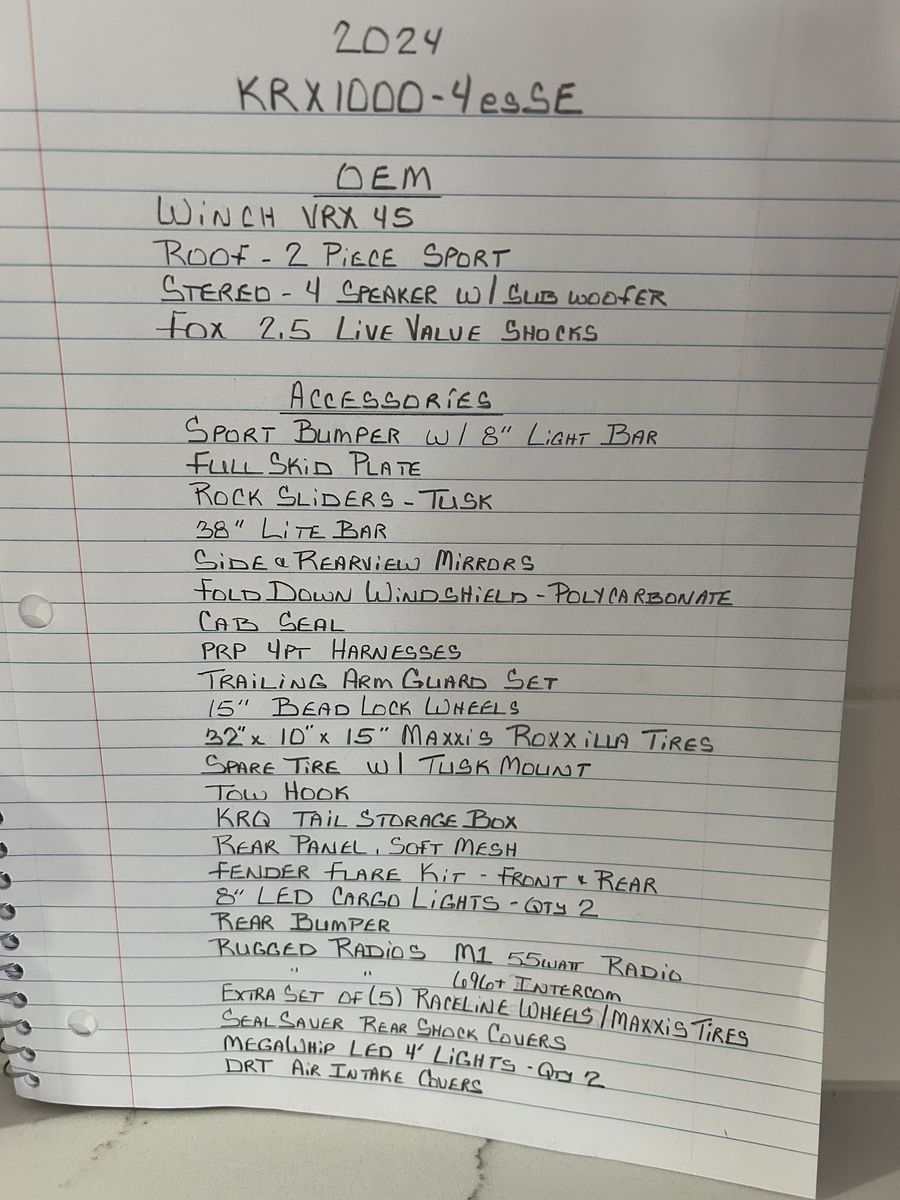 2024
KRX1000-4esSE
OEM
WINCH VRX 45
ROOF - 2 PIECE SPORT
STEREO - 4 SPEAKER W/ SUB WOOFER
FOX 2.5 LIVE VALUE SHOCKS
ACCESSORIES
SPORT BUMPER W/ 8" LIGHT BAR
FULL SKID PLATE
ROCK SLIDERS - TUSK
38" LITE BAR
SIDE & REARVIEW MIRRORS
FOLD DOWN WINDSHIELD - POLYCARBONATE
CAB SEAL
PRP 4PT HARNESSES
TRAILING ARM GUARD SET
15" BEAD LOCK WHEELS
32" x 10" x 15" MAXXIS ROXXILLA TIRES
SPARE TIRE W/ TUSK MOUNT
TOW HOOK
KRQ TAIL STORAGE BOX
REAR PANEL, SOFT MESH
FENDER FLARE KIT - FRONT & REAR
8" LED CARGO LIGHTS - QTY 2
REAR BUMPER
RUGGED RADIOS M1 55WATT RADIO
" " 696+ INTERCOM
EXTRA SET OF (5) RACELINE WHEELS / MAXXIS TIRES
SEAL SAVER REAR SHOCK COVERS
MEGAWHIP LED 4' LIGHTS - QTY 2
DRT AIR INTAKE COVERS